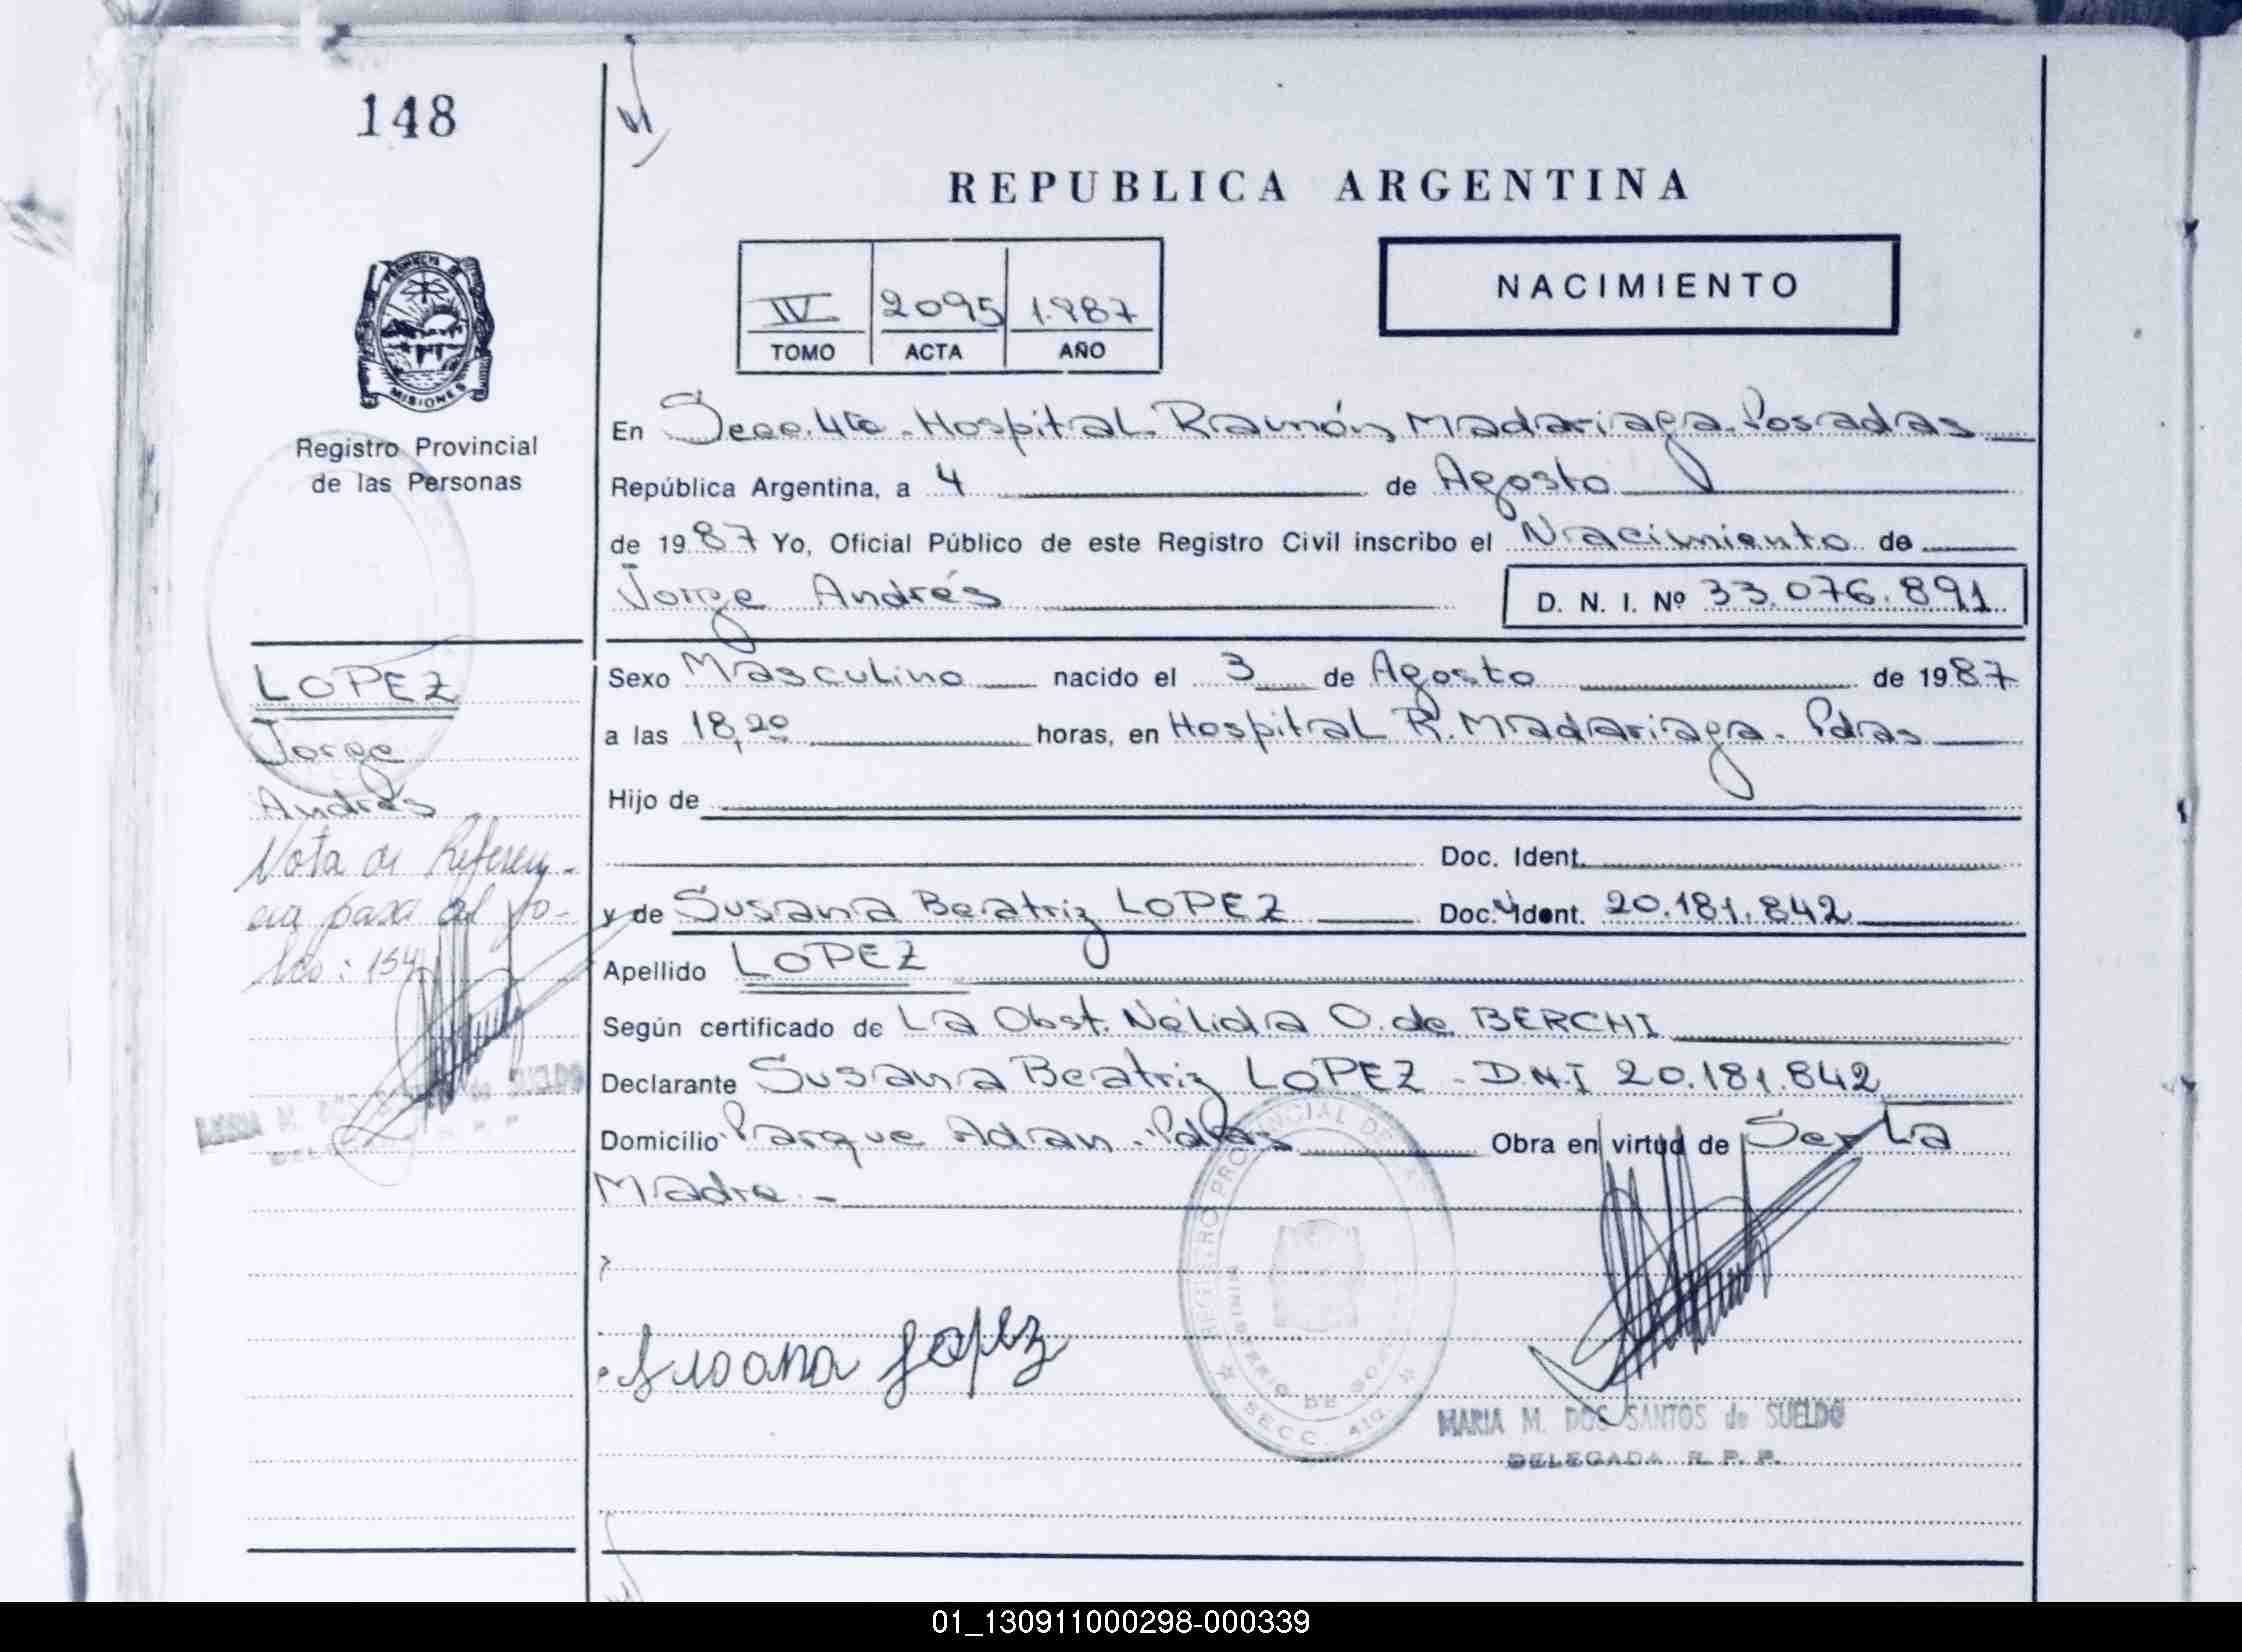 148
REPUBLICA ARGENTINA
IV 2095 1.987
TOMO ACTA AÑO
NACIMIENTO
PROVINCIA DE
MISIONES
Registro Provincial
de las Personas
En Secc. 4ta. Hospital Ramón Madariaga Posadas
República Argentina, a 4 de Agosto
de 1987 Yo, Oficial Público de este Registro Civil inscribo el Nacimiento de
Jorge Andrés
D. N. I. Nº 33.076.891
LOPEZ
Jorge
Andrés
Nota de Referen-
cia pasa al fo-
lio: 154
Sexo Masculino nacido el 3 de Agosto de 1987
a las 18,20 horas, en Hospital R. Madariaga. Pdas
Hijo de
Doc. Ident.
y de Susana Beatriz LOPEZ Doc. Ident. 20.181.842
Apellido LOPEZ
Según certificado de La Obst. Nélida O. de BERCHI
Declarante Susana Beatriz LOPEZ - D.N.I 20.181.842
Domicilio Parque Adan. Pdas Obra en virtud de Ser La
Madre.-
Susana Lopez
REGISTRO PROVINCIAL DE
SECC. 4ta.
MARIA M. DOS SANTOS de SUELDO
DELEGADA R. P. P.
01_130911000298-000339